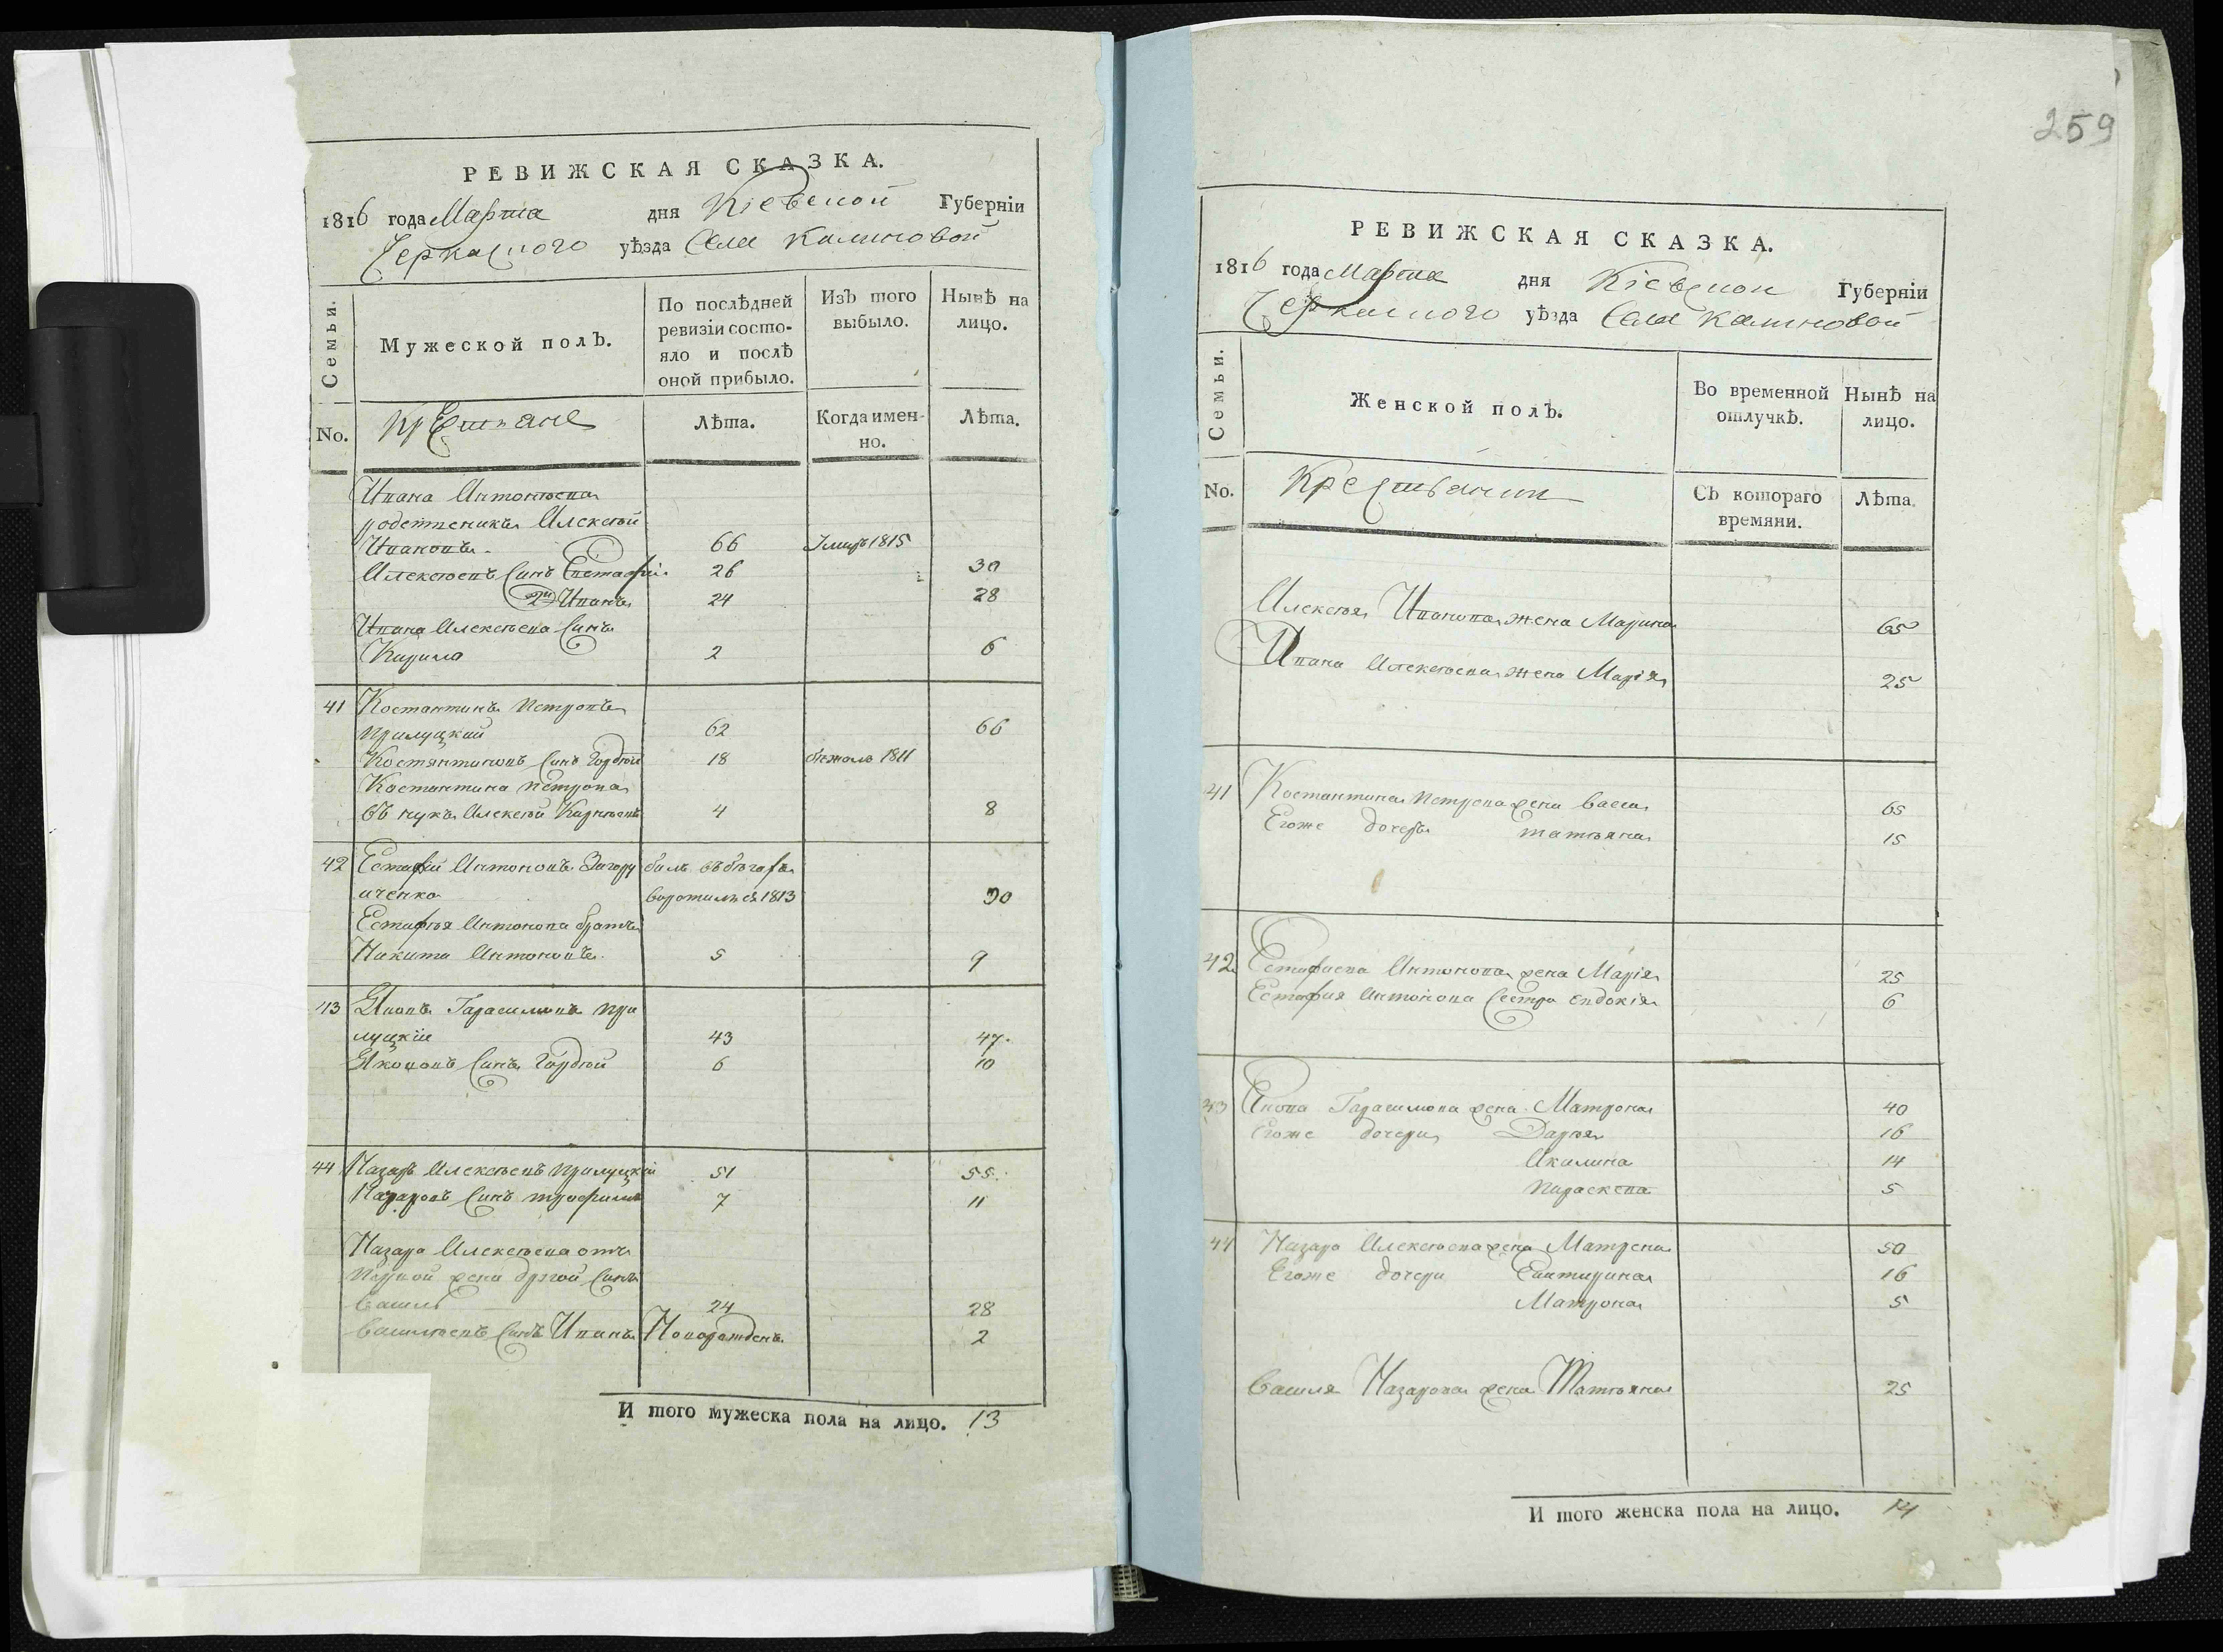 РЕВИЖСКАЯ СКАЗКА.
1816 года Марта дня Кіевской Губерніи
Черкаского уѣзда Села Калиновой
Семьи.
Мужеской полъ.
По послѣдней ревизіи состояло и послѣ оной прибыло.
Изъ того выбыло.
Нынѣ на лицо.
No.
Крестьяне
Лѣта.
Когда именно.
Лѣта.
Ивана Антонѣева
родственикъ Алексѣй
Ивановъ 66 Умеръ 1815
Алексѣевъ Синъ Евстафій 26 30
2й Иванъ 24 28
Ивана Алексѣева Синъ
Кирило 2 6
41 Костантинъ Петровъ
Прилуцкий 62 66
Костянтиновъ Синъ Гордѣй 18 бежалъ 1811
Костантина Петрова
внукъ Алексѣй Карнѣевъ 4 8
42 Естафій Антоновъ билъ въ бѣгахъ
воротился 1813 30
Естафѣя Антонова братъ
Никита Антоновъ 5 9
43 Яковъ Гарасимовъ При
луцкій 43 47.
Якововъ Синъ Гордѣй 6 10
44 Назаръ Алексѣевъ Прилуцкій 51 55.
Назаровъ Синъ Трофимъ 7 11
Назара Алексѣева отъ
Первой жени другой Синъ
Василь 24 28
Василѣевъ Синъ Иванъ Новорожденъ 2
И того мужеска пола на лицо. 13
259
РЕВИЖСКАЯ СКАЗКА.
1816 года Марта дня Кіевской Губерніи
Черкаского уѣзда Села Калиновой
Семьи.
Женской полъ.
Во временной отлучкѣ.
Нынѣ на лицо.
No.
Крестьянки
Съ котораго времяни.
Лѣта.
Алексѣя Иванова жена Марина 65
Ивана Алексѣева жена Марія 25
41 Костантина Петрова жена Васса 65
Егоже дочерь татѣяна 15
42 Естафиева Антонова жена Марія 25
Естафия Антонова Сестра Евдокія 6
43 Якова Гарасимова жена Матрона 40
Егоже дочери Дарѣя 16
Акилина 14
Параскева 5
44 Назара Алексѣева жена Матрена 50
Егоже дочери Екатирина 16
Матрона 5
Василя Назарова жена Татѣяна 25
И того женска пола на лицо. 14